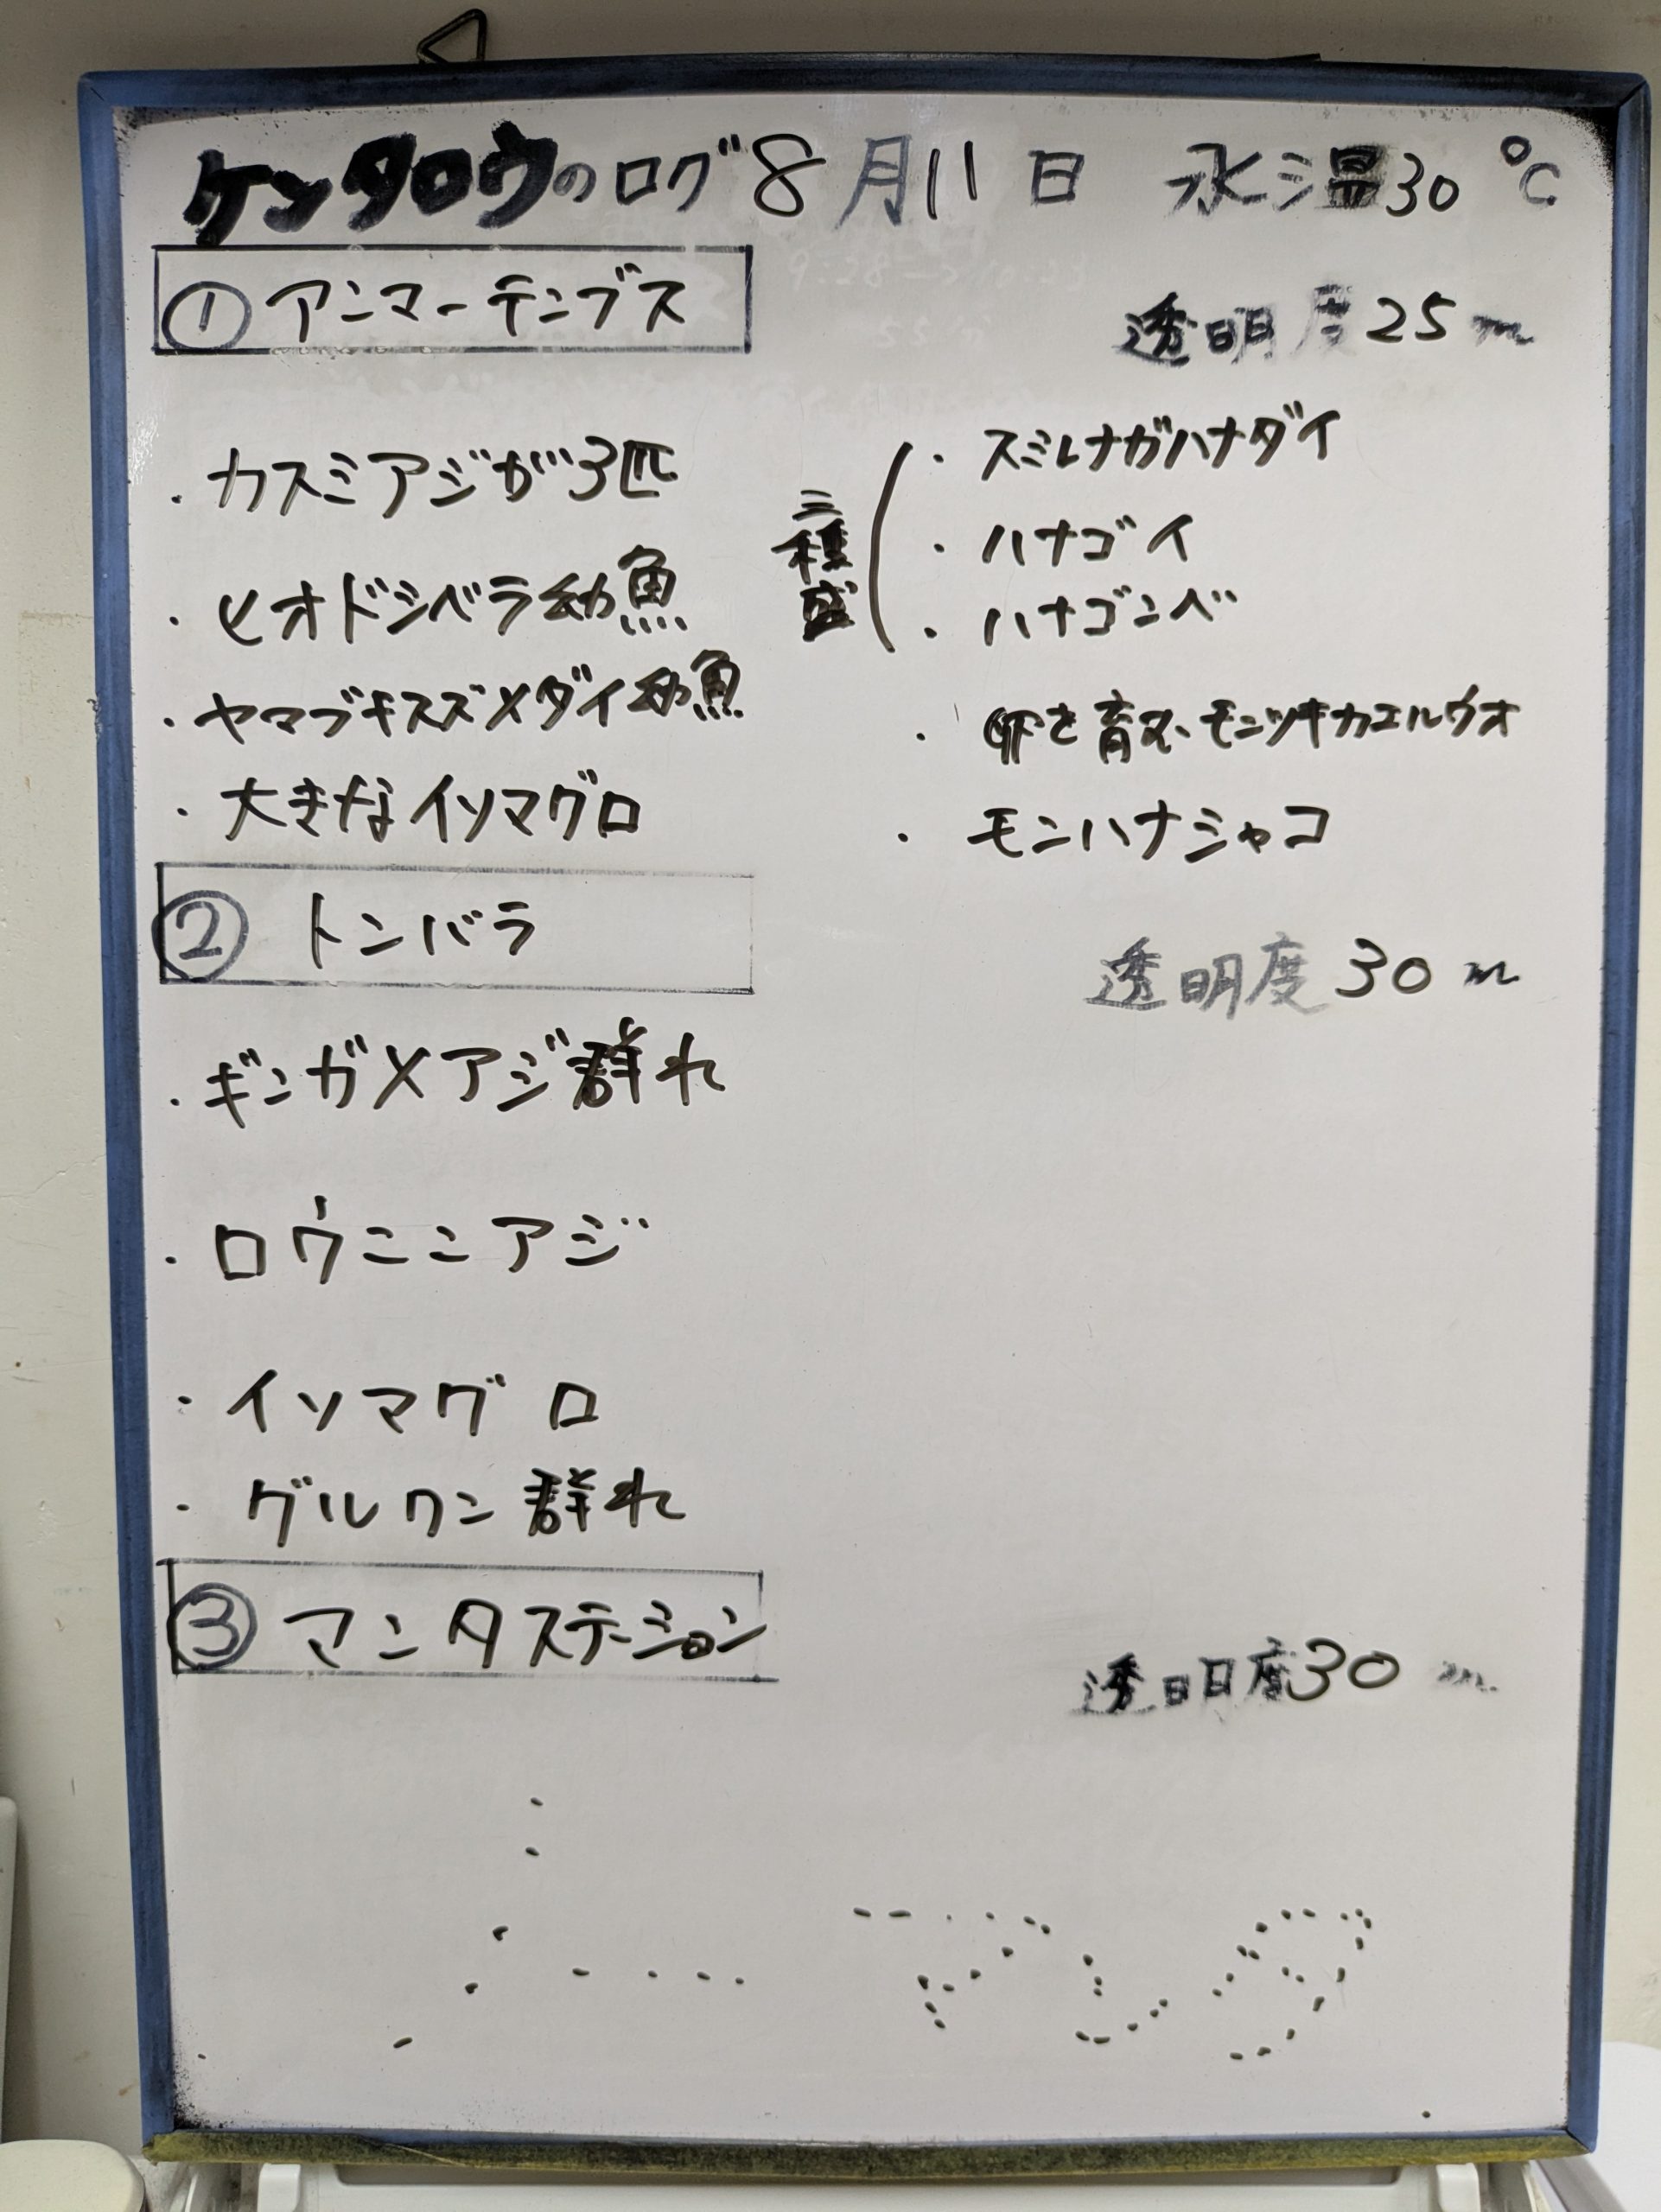 ケンタロウのログ 8月11日 水温30℃
① アンマーテンブス
透明度25m
・カスミアジが3匹
・ヒオドシベラ幼魚
・ヤマブキスズメダイ幼魚
・大きなイソマグロ
三種盛
・スミレナガハナダイ
・ハナゴイ
・ハナゴンベ
・卵を育てるモンツキカエルウオ
・モンハナシャコ
② トンバラ
透明度30m
・ギンガメアジ群れ
・ロウニンアジ
・イソマグロ
・グルクン群れ
③ マンタステーション
透明度30m
マンタ